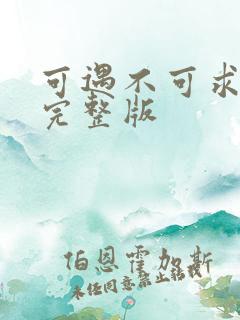 可遇不可求
完整版
伯恩霍加斯
未经同意禁止转载